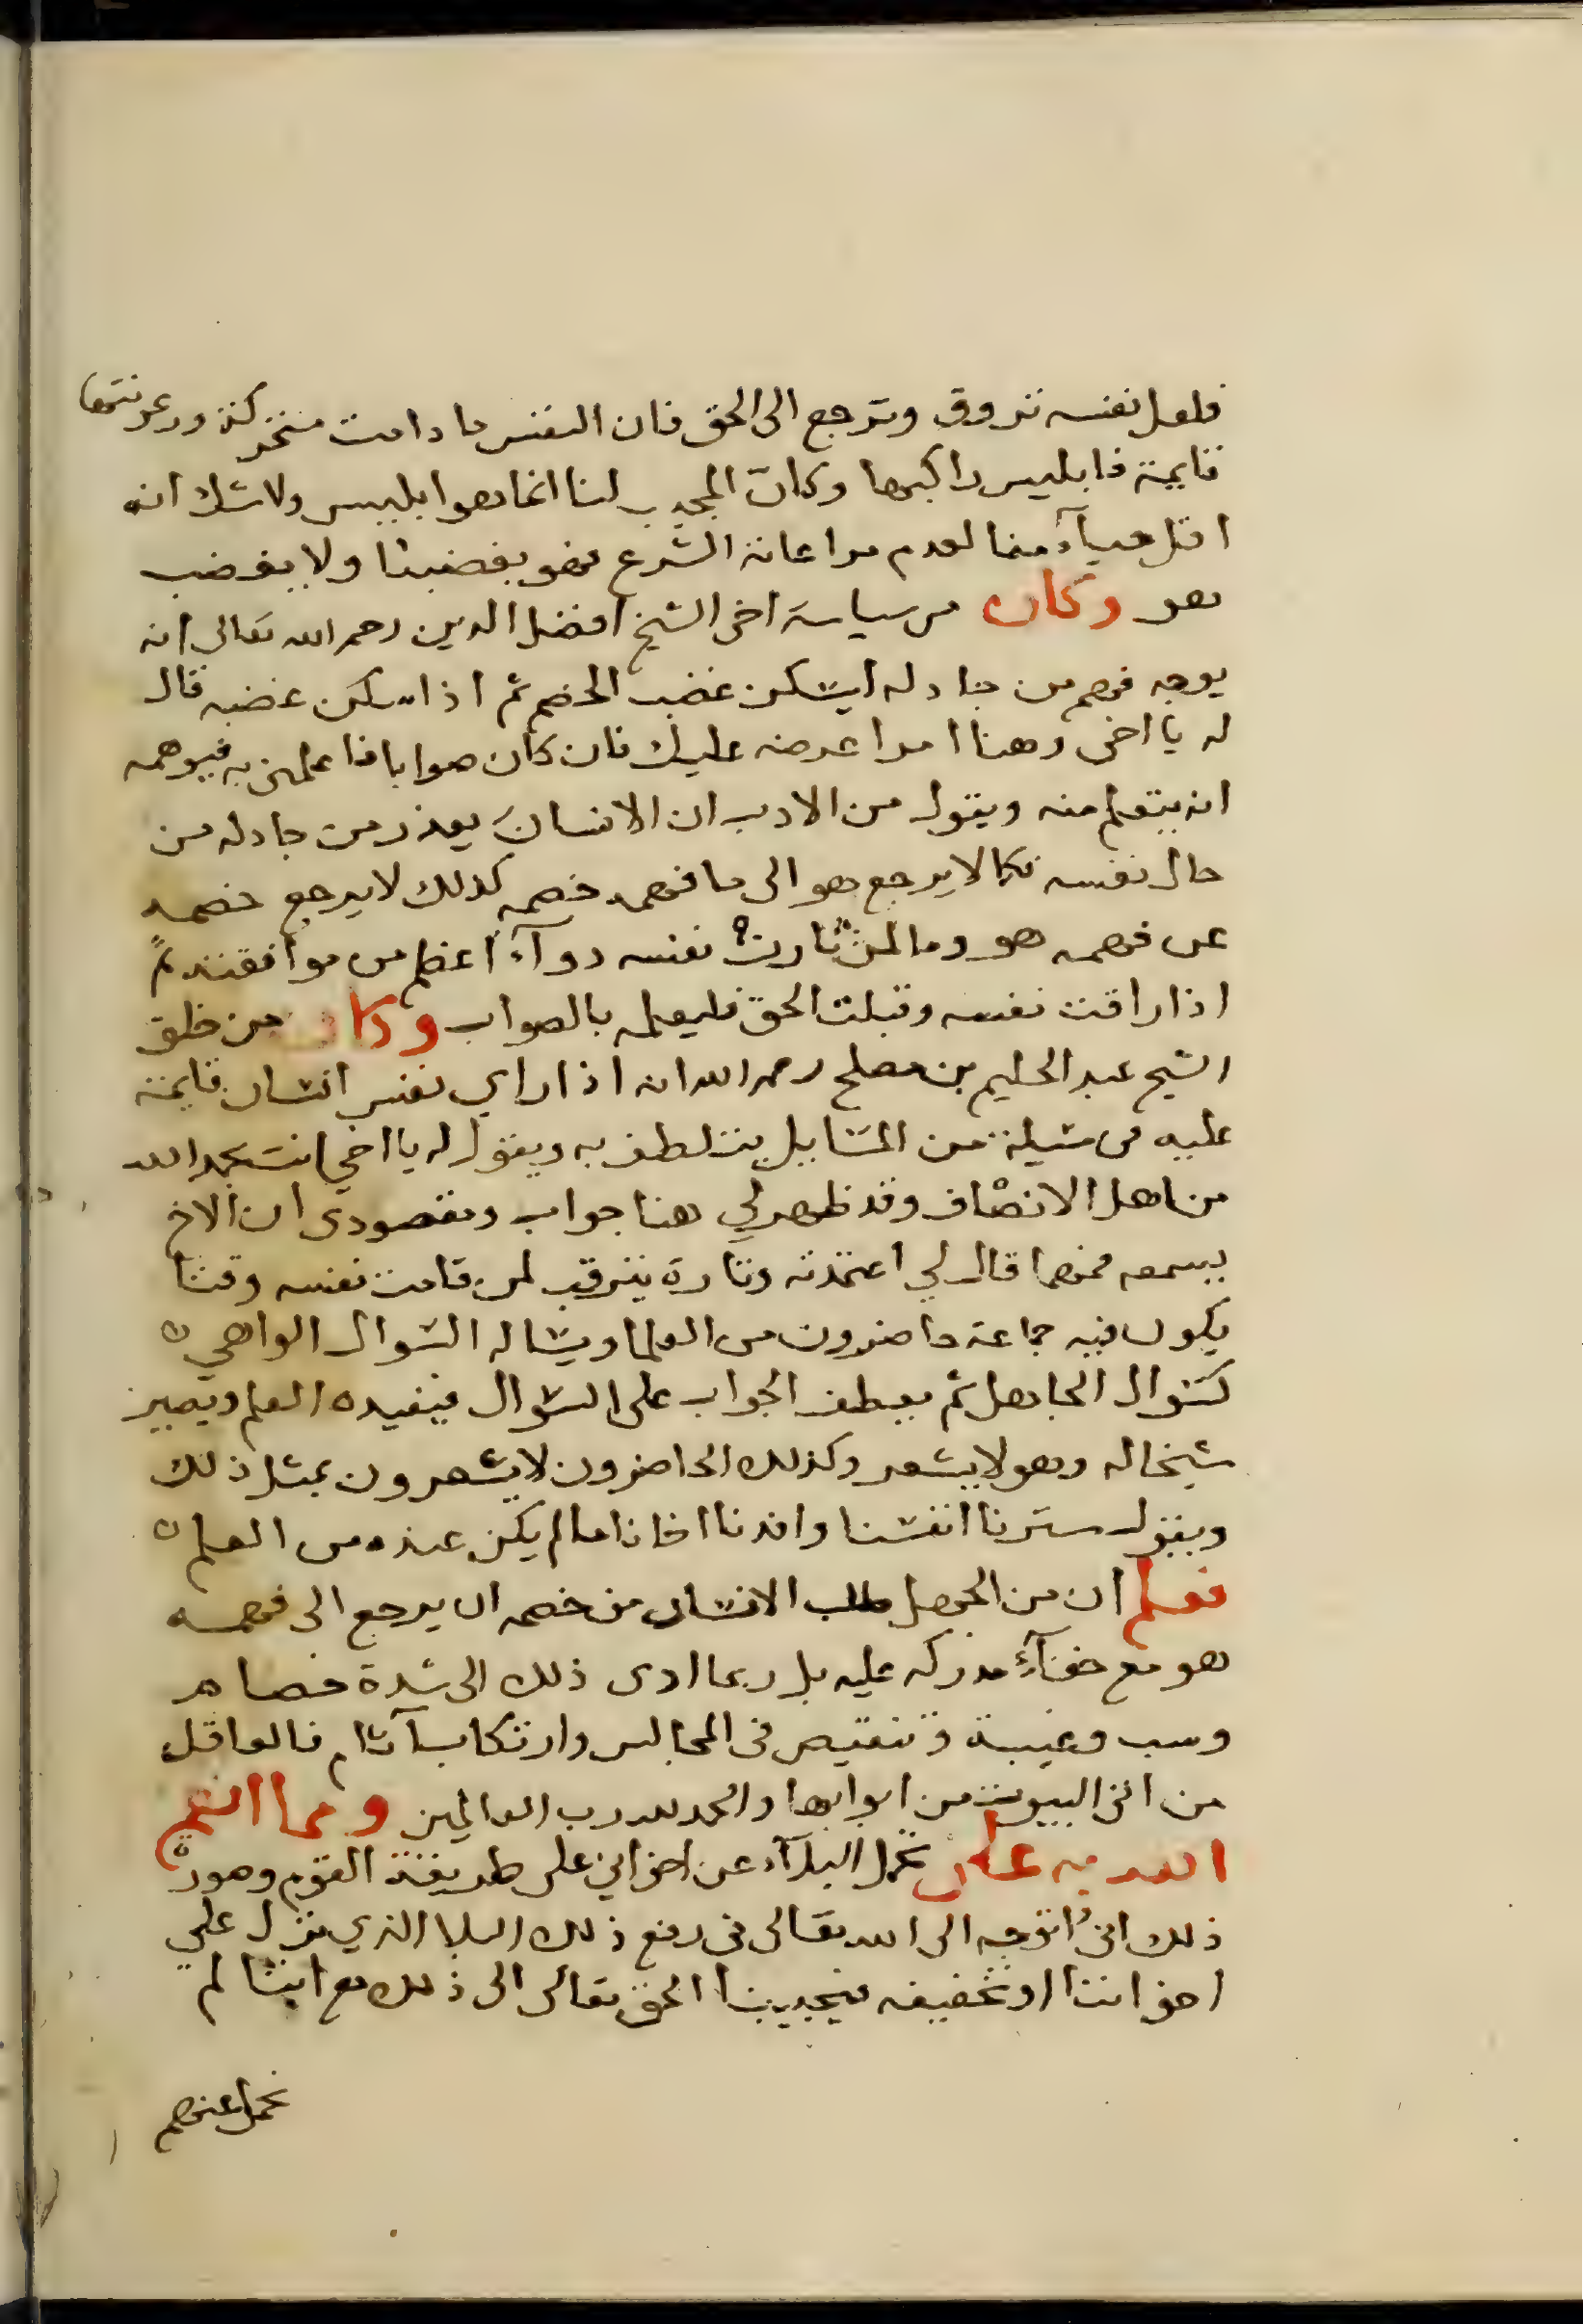 فلعل نفسه تروق وترجع الى الحق فان النفس ما دامت متحركة ورعونتها
قايمة فابليس راكبها وكان المجيب لنا انما هو ابليس ولا شك انه
اقل حيآء منا لعدم مراعاته الشرع فهو يغضبنا ولا يغضب
هو وكان من سياسة اخى الشيخ افضل الدين رحمه الله تعالى انه
يوجه فهم من جادله ليسكن غضب الخصم ثم اذا سكن غضبه قال
له يا اخى وهنا امر اعرضه عليك فان كان صوابا فاعلمنى به فيوهمه
انه يتعلم منه ويقول من الادب ان الانسان يعذر من جادله من
حال نفسه فكما لا يرجع هو الى ما فهمه خصمه كذلك لا يرجع خصمه
عن فهمه هو وما لمن ثارت نفسه دوآء اعظم من موافقته ثم
اذا راقت نفسه وقبلت الحق فليعلمه بالصواب وكان من خلق
الشيخ عبد الحليم بن مصلح رحمه الله انه اذا راي نفس انسان قايمة
عليه فى مسيلة من المسايل يتلطف به ويقول له يا اخي انت بحمد الله
من اهل الانصاف وقد ظهر لي هنا جواب ومقصودى ان الاخ
يسمعه فمهما قال لي اعتمدته وتارة يترقب لمن قامت نفسه وقتا
يكون فيه جماعة حاضرون من العلما ويساله السوال الواهي
كسوال الجاهل ثم يعطف الجواب على السوال فيفيده العلم ويصير
شيخا له وهو لا يشعر وكذلك الحاضرون لا يشعرون بمثل ذلك
ويقول سترنا انفسنا وافدنا اخانا ما لم يكن عنده من العلم
فعلم ان من الجهل طلب الانسان من خصمه ان يرجع الى فهمه
هو مع خفآء مدركه عليه بل ربما ادى ذلك الى شدة خصام
وسب وغيبة وتنقيص فى المجالس وارتكاب آثام فالعاقل
من اتى البيوت من ابوابها والحمد لله رب العالمين ومما انعم
الله به على تحمل البلآء عن اخواني على طريقة القوم وصورة
ذلك انى اتوجه الى الله تعالى فى رفع ذلك البلا الذي نزل على
اخواننا او تخفيفه فيجيبنا الحق تعالى الى ذلك مع اننا لم
نحمل عنهم